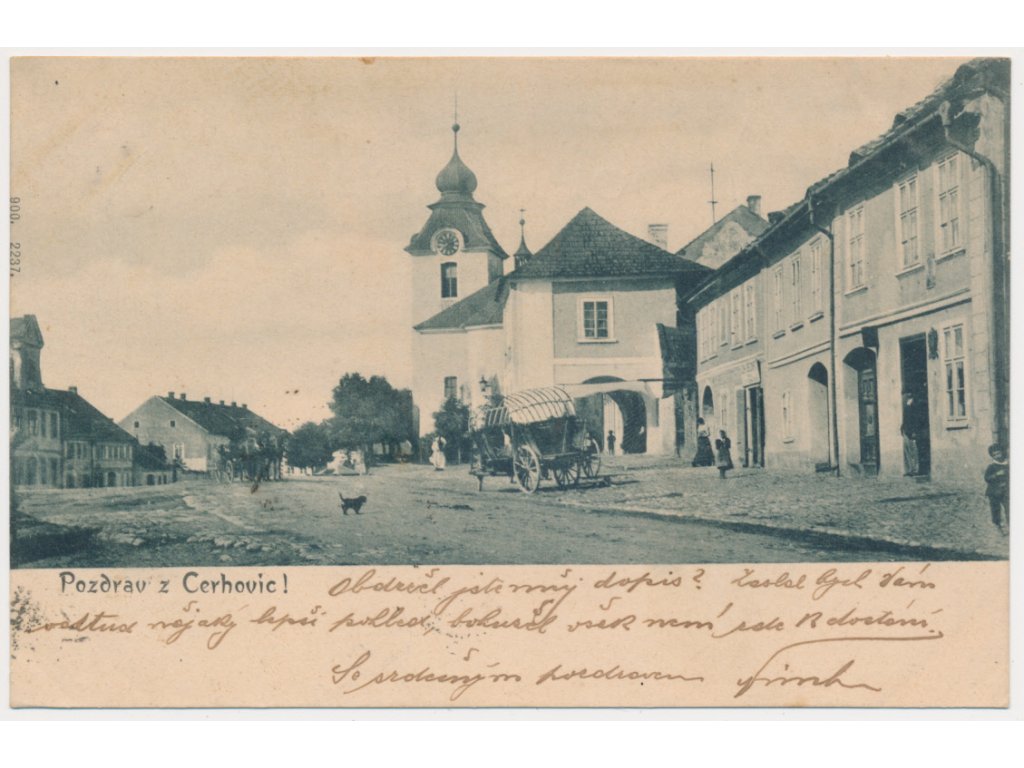 900. 2237.
Pozdrav z Cerhovic!
Obdržel jste můj dopis? Zaslal bych Vám
odtud nějaký lepší pohled, bohužel však není zde k dostání.
Se srdečným pozdravem